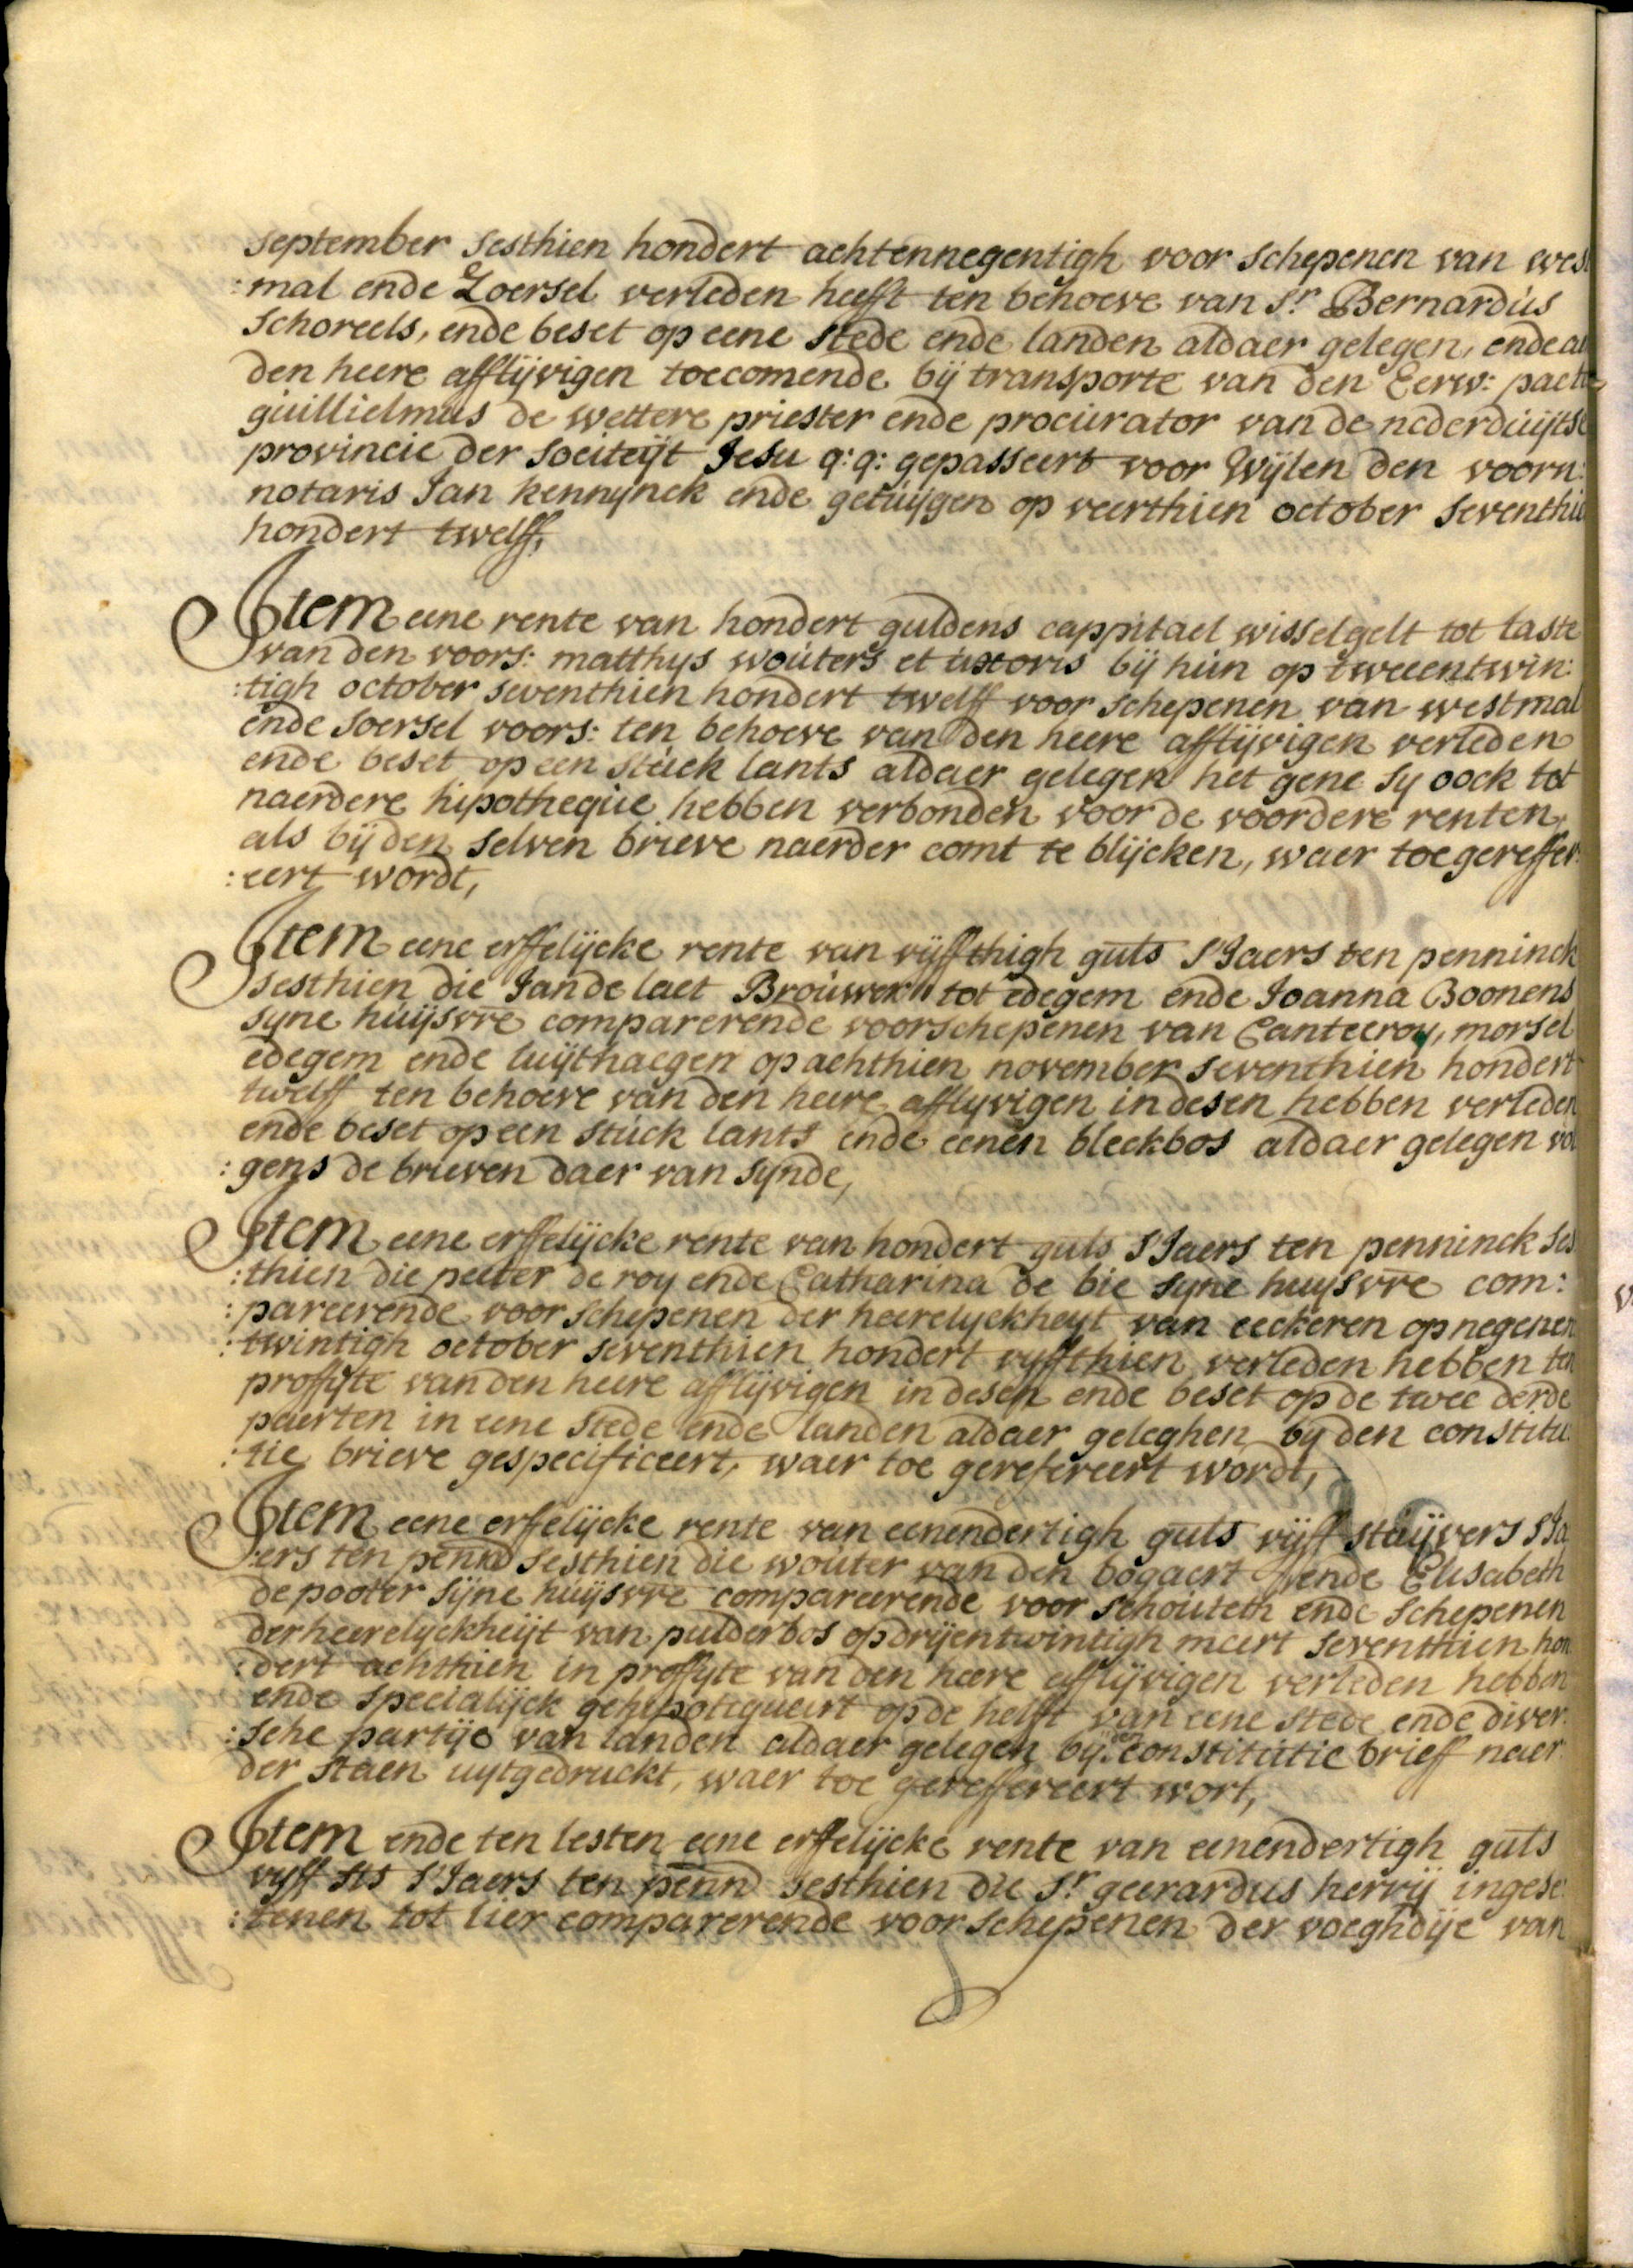 september sesthien hondert achtennegentigh voor schepenen van west
:mal ende Zoersel verleden heefft ten behoeve van Sr. Bernardus
Schoreels, ende beset op eene stede ende landen aldaer gelegen, ende
den heere afflijvigen toecomende bij transporte van den Eerw:
guillielmus de wettere priester ende procurator van de nederduijtse
provincie der soeiteijt Jesu q:q: gepasseert voor Wijlen den voorn:
notaris Jan kennijnck ende getuijgen op veerthien october seventhie
hondert twelff,
Item eene rente van hondert guldens cappitael wisselgelt tot laste
van den voors: matthys wouters et uxoris bij hun op tweeentwin:
:tigh october seventhien hondert twelff voor schepenen van westmal
ende soersel voors: ten behoeve van den heere afflijvigen verleden
ende beset op een stuck lants aldaer gelegen het gene sy oock tot
naerdere hipotheque hebben verbonden voor de voordere renten,
als bij den selven brieve naerder comt te blijcken, waer toe gereffer:
:eert wordt,
Item eene erffelijcke rente van vijffthigh guls s'Jaers ten penninck
sesthien die Jan de laet Brouwer tot edegem ende Joanna Boonens
syne huijsvre comparerende voor schepenen van Canteeroy, morsel
edegem ende luijthaegen op achthien november seventhien hondert
twelff ten behoeve van den heere afflyvigen in desen hebben verleden
ende beset op een stuck lants ende eenen bleckbos aldaer gelegen vol
:gens de brieven daer van synde,
Item eene erffelijcke rente van hondert guls s'Jaers ten penninck ses
:thien die peeter de roy ende Catharina de bie syne huysvre com:
:pareerende voor schepenen der heerelyckheyt van eeckeren op negenen
:twintigh october seventhien hondert vyffthien verleden hebben ten
proffyte van den heere afflijvigen in desen ende beset op de twee derde
paerten in eene stede ende landen aldaer geleghen by den constitu:
:tie brieve gespecificeert, waer toe gerefereert wordt,
Item eene erfelijcke rente van eenendertigh guls vijff stuijvers s'Ja
:ers ten pennd sesthien die wouter van den bogaert ende Elisabeth
de pooter sijne huijsvre compareerende voor schouteth ende schepenen
der heerelyckheijt van pulderbos op drijentwintigh meert seventhien hon
:dert achthien in proffyte van den heere afflijvigen verleden hebben
ende specialijck gehipotiqueert op de helft van eene stede ende diver:
:sche partije van landen aldaer gelegen bij den constitutie brieff naer:
der staen uytgedruckt, waer toe gereffereert wort,
Item ende ten lesten eene erffelijcke rente van eenendertigh guls
vyff sts s'Jaers ten pennd sesthien die Sr. geerardus hervij ingese:
:tenen tot lier comparerende voor schepenen der voeghdije van